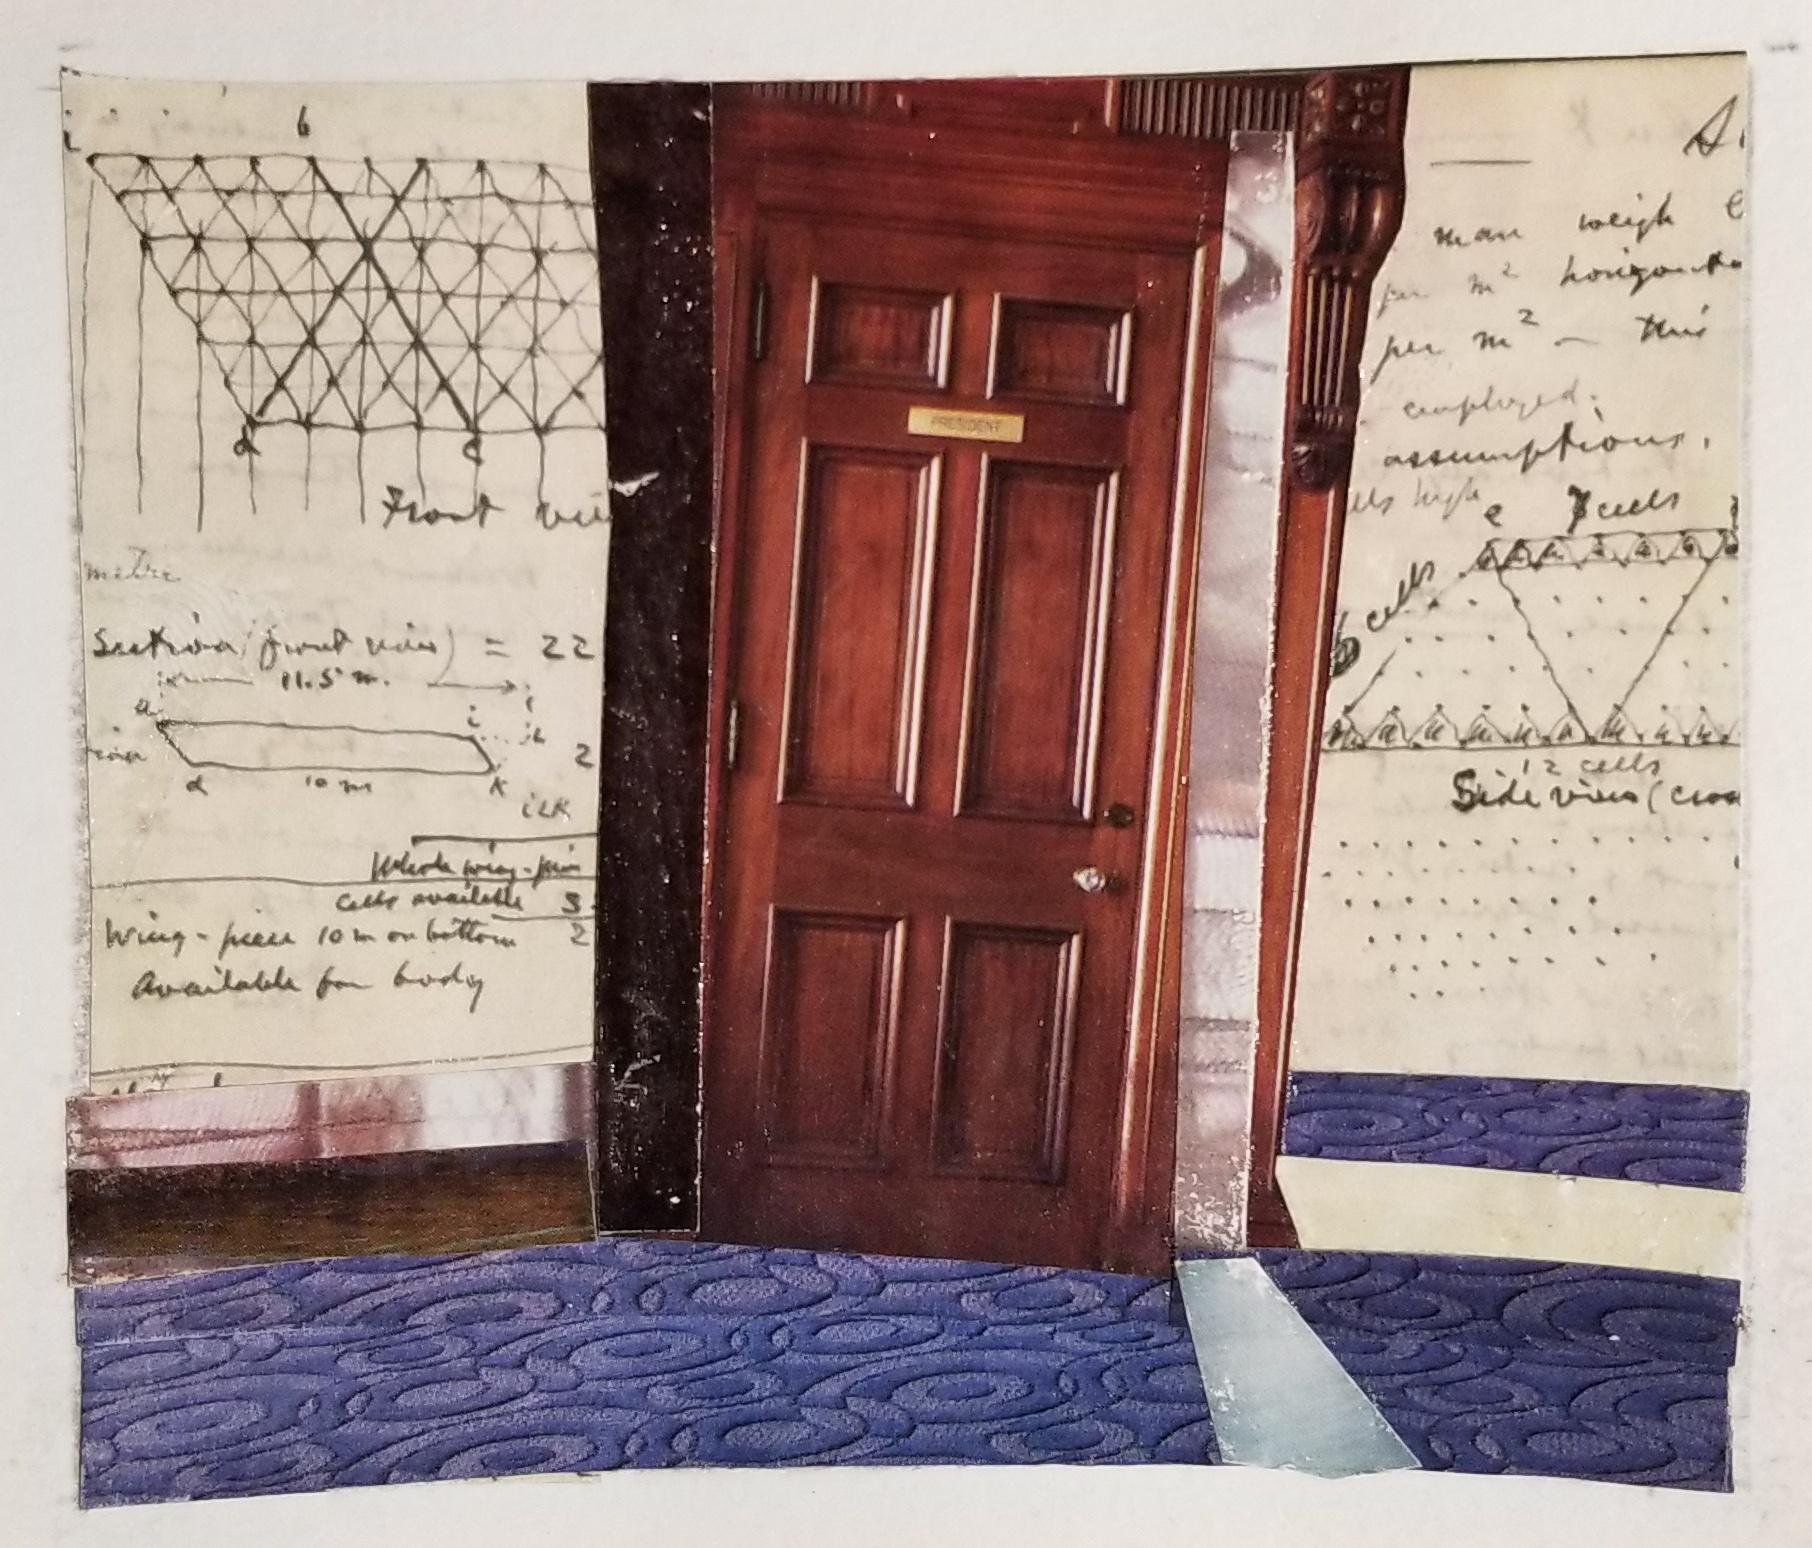 b
d
c
Front
metre
Section (front view) = 22
11.5 m.
a
i
i
L
2
d
10 m
k
iLK
Whole wing-
cells available
3
Wing-piece 10 m on bottom 2
Available for body
PRESIDENT
man weigh
per m² horizonta
per m² — this
employed.
assumptions.
lls high
e
7 cells
6 cells
12 cells
Side view (cros